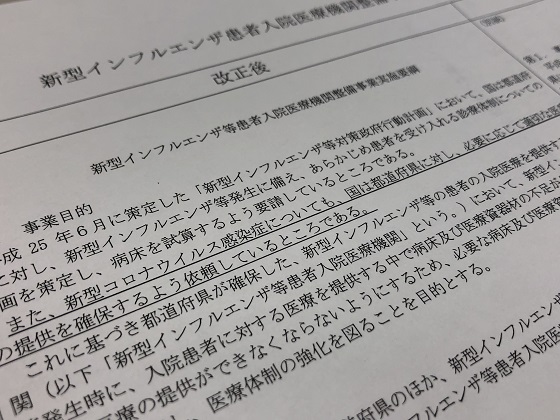 新型インフルエンザ患者入院医療機関整備
改正後
新型インフルエンザ等患者入院医療機関整備事業実施要綱
事業目的
成 25 年６月に策定した「新型インフルエンザ等対策政府行動計画」において、国は都道府
に対し、新型インフルエンザ等発生に備え、あらかじめ患者を受け入れる診療体制についての
画を策定し、病床を試算するよう要請しているところである。
また、新型コロナウイルス感染症についても、国は都道府県に対し、必要に応じて適切な
の提供を確保するよう依頼しているところである。
これに基づき都道府県が確保した、新型インフルエンザ等の患者の入院医療を提供す
関（以下「新型インフルエンザ等患者入院医療機関」という。）において、新型イン
発生時に、入院患者に対する医療を提供する中で病床及び医療資器材の不足
医療の提供ができなくならないようにするため、必要な病床及び医療資
、医療体制の強化を図ることを目的とする。
府県のほか、新型インフルエン
フルエンザ等患者入院医